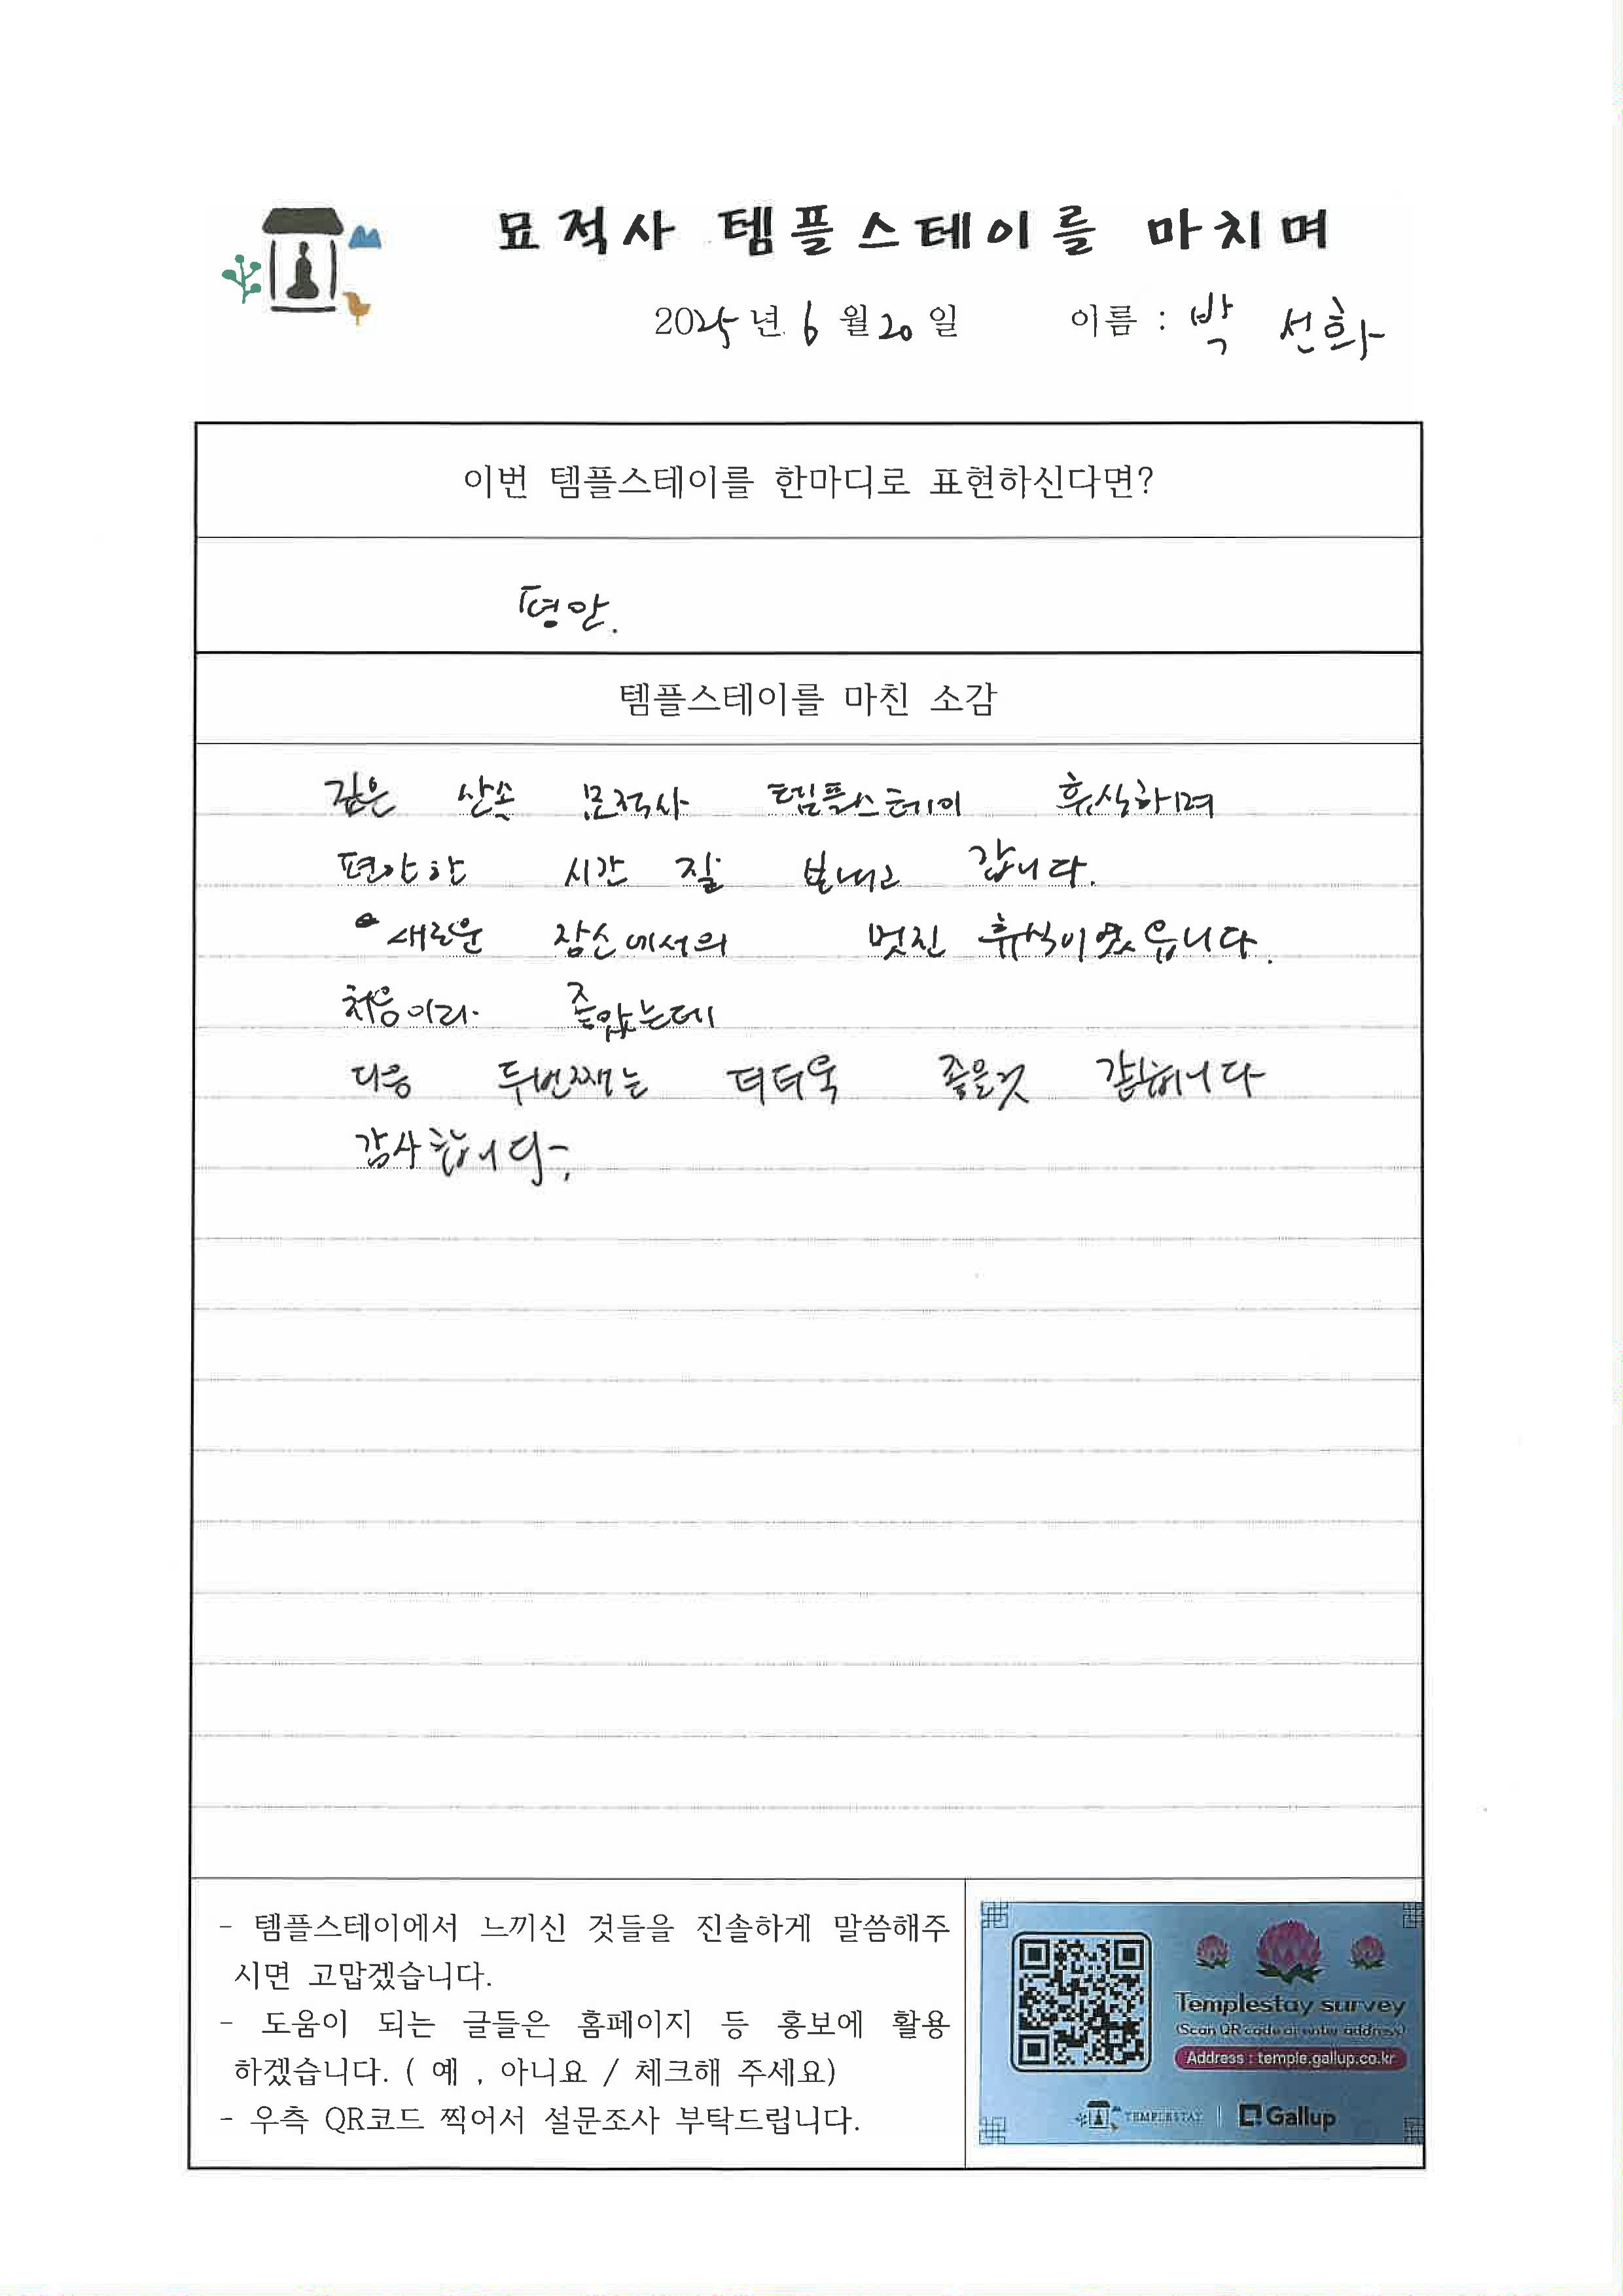 묘적사 템플스테이를 마치며
2025년 6월 20일 이름 : 박 선화
이번 템플스테이를 한마디로 표현하신다면?
평안.
템플스테이를 마친 소감
깊은 산속 묘적사 템플스테이 휴식하며
편안한 시간 잘 보내고 갑니다.
새로운 장소에서의 멋진 휴식이였읍니다.
처음이라 좋았는데
다음 두번째는 더더욱 좋을것 같습니다
감사합니다.
- 템플스테이에서 느끼신 것들을 진솔하게 말씀해주
시면 고맙겠습니다.
- 도움이 되는 글들은 홈페이지 등 홍보에 활용
하겠습니다. ( 예 , 아니요 / 체크해 주세요)
- 우측 QR코드 찍어서 설문조사 부탁드립니다.
Templestay survey
(Scan QR code or enter address)
Address : temple.gallup.co.kr
TEMPLESTAY | Gallup